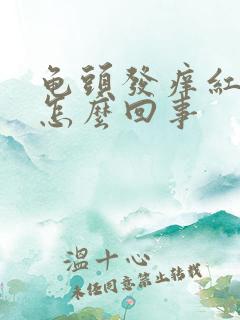 龟頭發痒紅
怎麼回事
溫十心
未经同意禁止转载